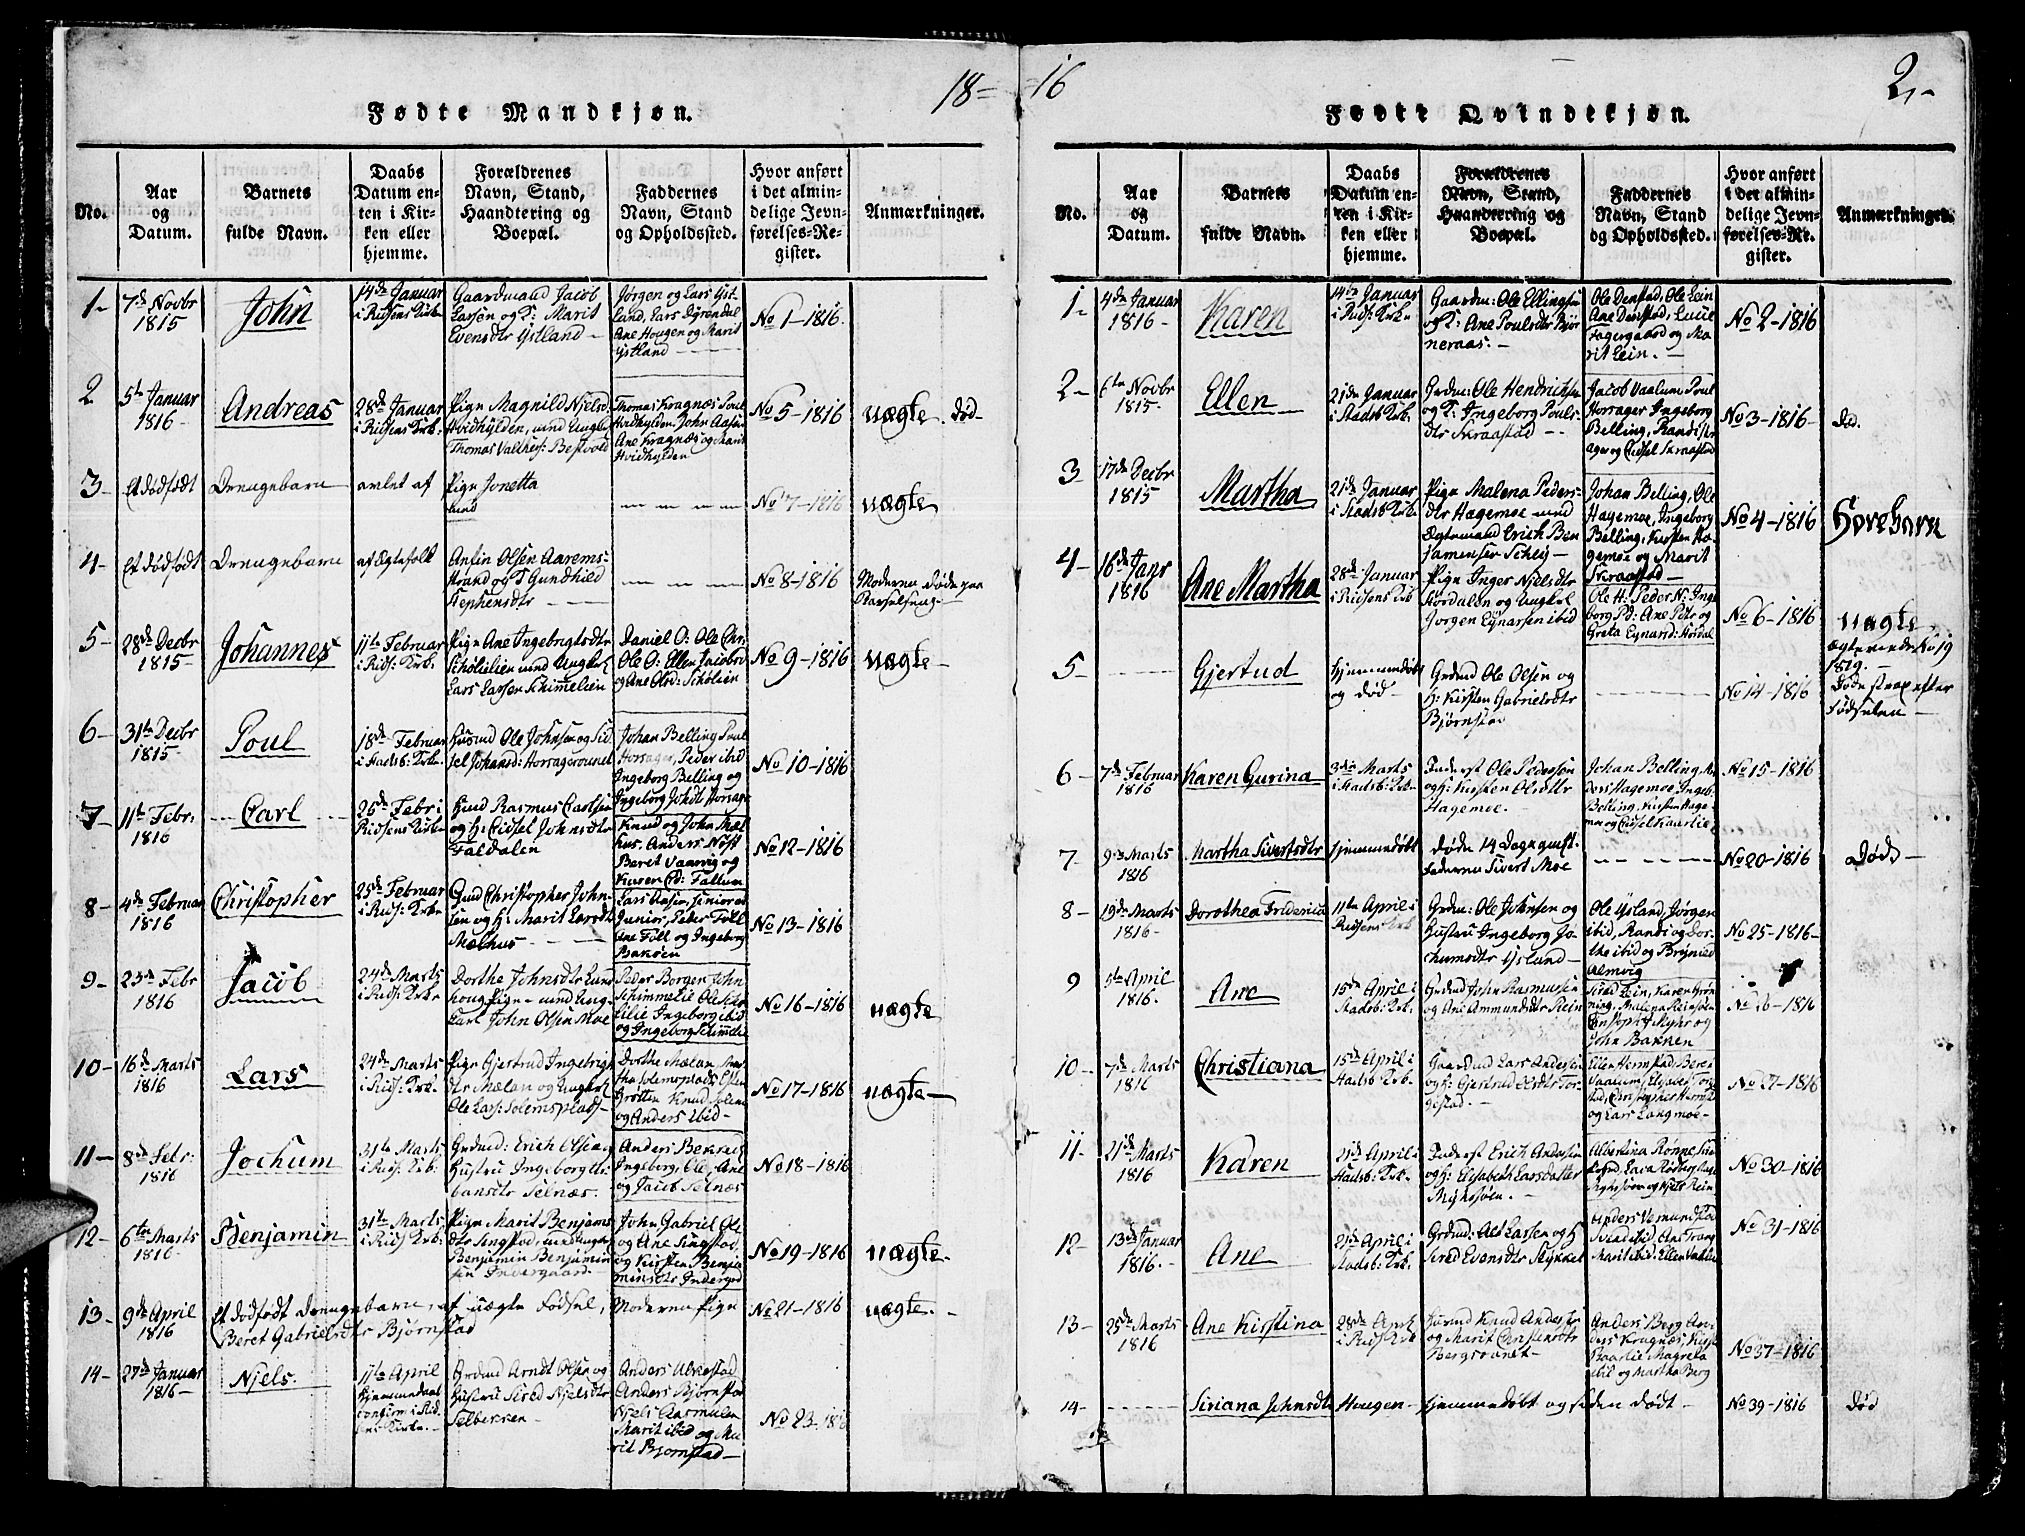 18=
=16
2,-
Fødte Mandkjøn.
No.
Aar
og
Datum.
Barnets
fulde Navn.
Daabs
Datum en-
ten i Kir-
ken eller
hjemme.
Forældrenes
Navn, Stand,
Haandtering og
Boepæl.
Faddernes
Navn, Stand
og Opholdssted.
Hvor anført
i det almin-
delige Jevn-
førelses-Re-
gister.
Anmærkninger.
1-
7de Novbr
1815
John
14de Januar
i Ridsens Kirke
Gaardmand Jacob
Larsen og K: Marit
Evensdtr Ystland -
Jørgen og Lars Yst-
land, Lars Dyrendal
Ane Hougen og Marit
Ystland
No 1-1816.
2
5te Januar
1816 -
Andreas
28de Januar
i Ridsens Kirk.
Pige Magnild Njelsd
Hvidhylden, med Ungkrl
Thomas Valthes: Bestvold
Thomas Kragnæs Poul
Hvidhylden John Aasen
Ane Kragnæs og Marit
Hvidhylden
No 5-1816
uægte. død-
3-
Et dødfødt
Drengebarn
avlet af
Pige Jonetta
Lund
No 7-1816
uægte
4-
Et dødfødt
Drengebarn
af Egtefolk
Anfin Olsen Aarems-
strand og K Gundhild
Stephensdtr
No 8-1816
Moderen døde paa
Barselseng-
5-
28de Decbr
1815 -
Johannes
11te Februar
i Rids: Kirk:
Pige Ane Ingebrigtsdtr
Schølielien med Ungkrl
Lars Larsen Schimmelien
Daniel O: Ole Chr:
Ole O: Ellen Jacobsd
og Ane Olsd: Schølien
No 9-1816
uægte-
6-
31te Decbr
1815
Poul
18de Februar
i Stadsb: Kirk.
Husmd Ole Johnsen og Sid
sel Johansd: Horsagerounet
Johan Belling Poul
Horsager, Peder ibid
Ingeborg Belling og
Ingeborg Johdtr Horsage
No 10-1816
7-
11te Febr:
1816
Carl
25de Febr i
Ridsens Kirke
Husmd Rasmus Carlsen
og H: Cidsel Johnsdtr
Faldalen
Knud og John Mæl
hus. Anders Nøst
Beret Vaavig og
Karen Cd: Fallum
No 12-1816
8-
4de Februar
1816
Christopher
25de Februar
i Rids: Kirk.
Grmd Christopher John-
sen og H: Marit Larsdtr
Mælhus
Lars Aasen, senior og
Junior, Peder Foll
Ane Foll og Ingeborg
Bakøen
No 13-1816
9-
23de Febr
1816
Jacob
24de Marts
i Rids: Kirke
Dorthe Johnsdtr Lund
houg Pige - med Ung-
karl John Olsen Moe
Peder Borgen John
Schimmelie Ole Schø
lilie Ingeborg ibid
og Ingeborg Schimelie
No 16-1816
uægte
10-
16de Marts
1816
Lars
24de Marts
i Rids: Kirk.
Pige Gjertrud Ingebrigt
dtr Mælan og Ungkrl
Ole Lars: Solemsplads-
Dorthe Mælan Mar-
tha Solemsplads, Esten
Grøtten Knud Solem
og Anders ibid-
No 17-1816
uægte-
11-
8de Febr:
1816
Jochum
31te Marts
i Rids: Kirk:
Grdmd: Erich Olsen
Hustru Ingeborg Ur-
bansdtr Selnæs.
Anders Bekken
Ingeborg, Ole, Ane
og Jacob Selnæs
No 18-1816
12-
6te Marts
1816
Benjamin
31te Marts
i Rids Kirk.
Pige Marit Benjams
dtr Singstad, med Ungkr
Benjamin Benjamin
sen Indergaard.
John Gabriel Ole
og Ane Singstad
og Kirsten Benja
minsdtr Indergrd
No 19-1816
uægte.
13-
9de April
1816
Et dødfødt Drengebarn, af uægte Fødsel, Moderen Pige
Beret Gabrielsdtr Bjørnstad
No 21-1816
uægte.-
14-
27de Januar
1816-
Njels.
11te April
Hjemmedøbt
confirm i Rid
sens Kirke.-
Grdmd Arndt Olsen og
Hustru Sired Njelsdtr
Selbekken-
Anders Alvestad
Anders Bjørnstad
Njels Aasmulen
Marit ibid og Ma
rit Bjørnstad-
No 23-1816
Fødte Qvindekjøn.
No.
Aar
og
Datum.
Barnets
fulde Navn.
Daabs
Datum en-
ten i Kir-
ken eller
hjemme.
Forældrenes
Navn, Stand,
Haandtering og
Boepæl.
Faddernes
Navn, Stand
og Opholdssted.
Hvor anført
i det almin-
delige Jevn-
førelses-Re-
gister.
Anmærkninger.
1-
4de Januar
1816 -
Karen
14te Januar
i Rids: Kirke
Gaardm: Ole Ellingsen
og K: Ane Poulsdtr Bjør
neraas.-
Ole Denstad, Ole Lein
Ane Denstad, Lucie
Fagergaard og Ma
rit Lein.-
No 2-1816
2-
6te Novbr
1815.
Ellen
21de Januar
i Stadsb: Kirk
Grdm: Ole Hendrichsen
og K: Ingeborg Pouls-
dtr Skraastad -
Jacob Vaalum Poul
Horsager Ingeborg
Belling, Randi Hors
ager og Cidsel Skraastad
No 3-1816-
Død.
3-
17de Decbr
1815
Martha
21de Januar
i Stadsb Kirk.
Pige Malena Peders-
dtr Hagemoe med
Egtemand Erich Ben
jamensen Schley-
Johan Belling, Ole
Hagemoe, Ingeborg
Belling, Kirsten Ha
gemoe og Marit
Skraastad-
No 4-1816
Horebarn
4-
16de Janr
1816
Ane Martha
28de Januar
i Ridsens Kirk
Pige Inger Njelsdtr
Hordalen og Ungkrl
Jørgen Eynarsen ibid
Ole H: Peder N: Inge
borg Pd: Ane Pdtr og
Greta Eynarsd: Hordal
No 6-1816
uægte
Ægteviede No 19
1819.-
5-
Gjertud
hjemmedøbt
og død
Grdmd Ole Olsen og
H: Kirsten Gabrielsdtr
Bjørnstad
No 14-1816
Døde strax efter
Fødselen -
6-
7de Februar
1816
Karen Gurina
3de Marts
i Stadsb: Kirk-
Inderst Ole Pedersen
og H: Kirsten Olsdtr
Hagemoe.-
Johan Belling, An
ders Hagemoe, Ingeb.
Belling, Kirsten Hage-
moe og Cidsel Kaarlie-
No 15-1816
7-
9de Marts
1816
Martha Sivertsdtr
hjemmedøbt
døde 14 Dage gml.
Faderen Sivert Moe
No 20-1816
Død-
8-
19de Marts
1816-
Dorothea Friderica
11te April i
Ridsens Kirk
Grdm: Ole Johnsen og
Hustru Ingeborg Jo-
chumsdtr Ysland-
Ole Ysland, Jørgen
ibid, Randi og Dor-
the ibid og Brynild
Almvig
No 25-1816-
9
5te April
1816.
Ane
15de April i
Stadsb: Kirk.
Grdmd John Rasmussen
og Ane Ammundsdtr Rein
Sired Lein, Karen Grøn
ning, Malena Reinsøen
John Bakken
No 26-1816
10-
7de Marts
1816
Christiana
15de April i
Stadsb Kirk.
Gaardmd Lars Andersen
og H: Gjertrud Olsdtr Tor-
gestad.-
Ellen Hermstad Beret
Vaalum, Elsebet Torg
stad, Christopher Hermst
og Lars Langmoe-
No 27-1816
11-
21de Marts
1816
Karen
21de April i
Stadsb: Kirk.
Inderst Erich Andersen
og H: Elisabeth Larsdatter
Mykesøen.-
Albertina Rønne
No 30-1816
12-
13de Januar
1816.-
Ane
21de April i
Stadsb: Kirk.
Grdmd: Ole Larsen og H
Sired Evensdtr Stykket
Anders Vemundstad
Marit ibid: Ellen
No 31-1816
13-
25de Marts
1816
Ane Kirstina
28de April
i Rids Kirk
Husmd Knud Anders:
og Marit Christensdtr
Bergsounet-
Anders Berg An-
ders Kragnæs Kirst
Baarlie Magreta
ibid og Martha Berg
No 37-1816
14-
Siriana Johnsdtr
Hougen-
hjemmedøbt og siden dødt-
No 39-1816
Død